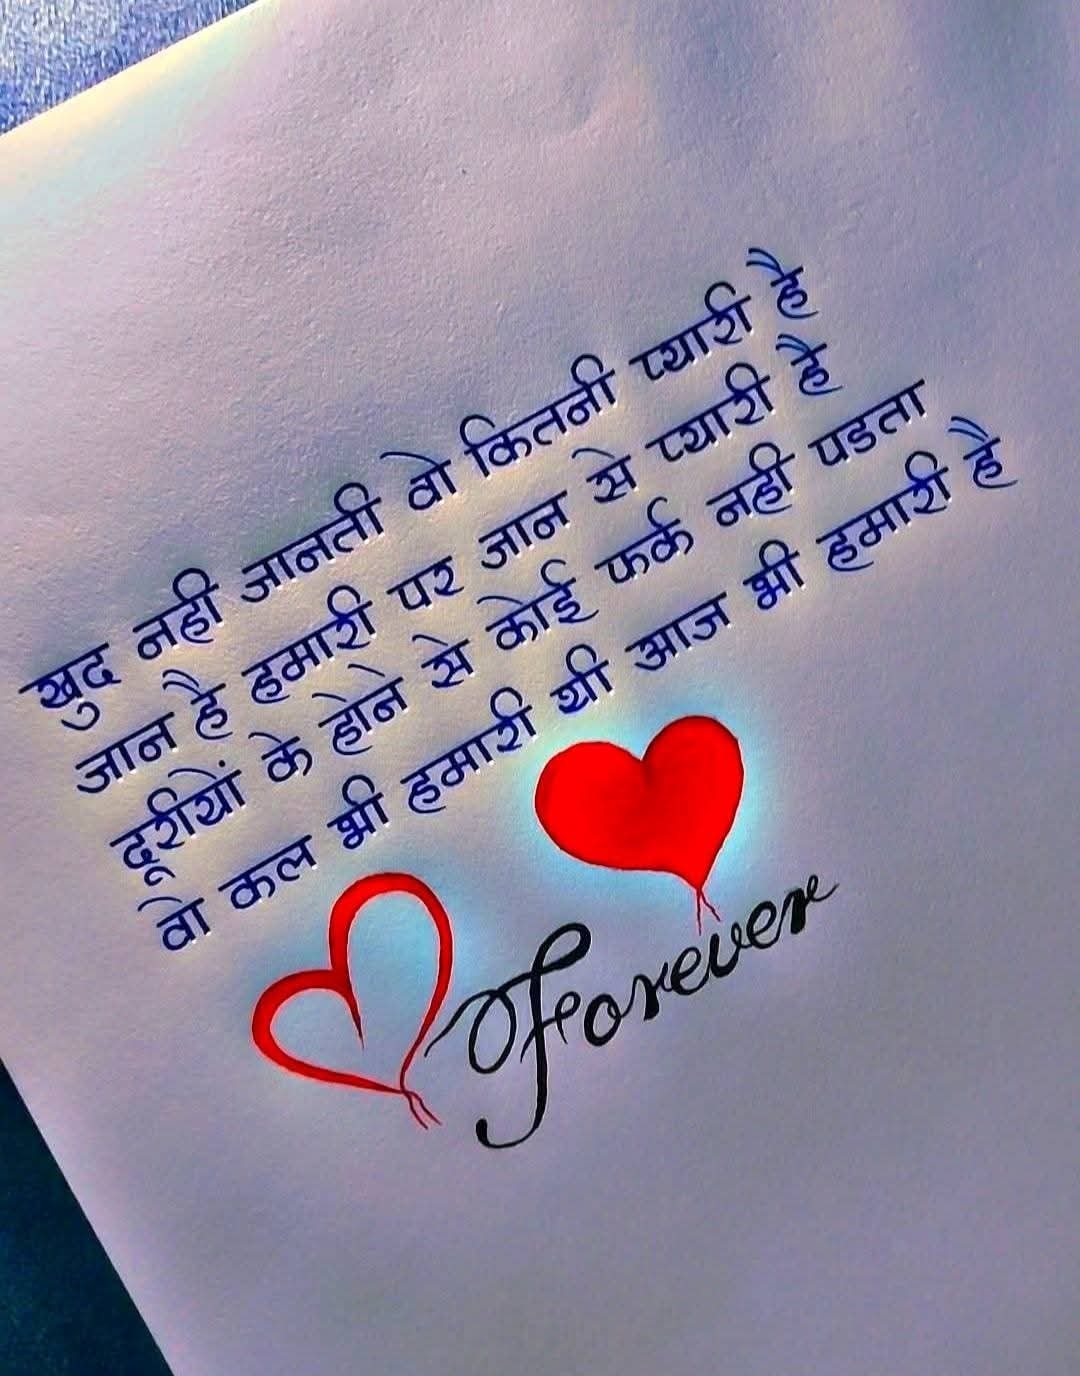 खुद नही जानती वो कितनी प्यारी है
जान है हमारी पर जान से प्यारी है
दूरीयों के होने से कोई फर्क नही पडता
वो कल भी हमारी थी आज भी हमारी है
Forever